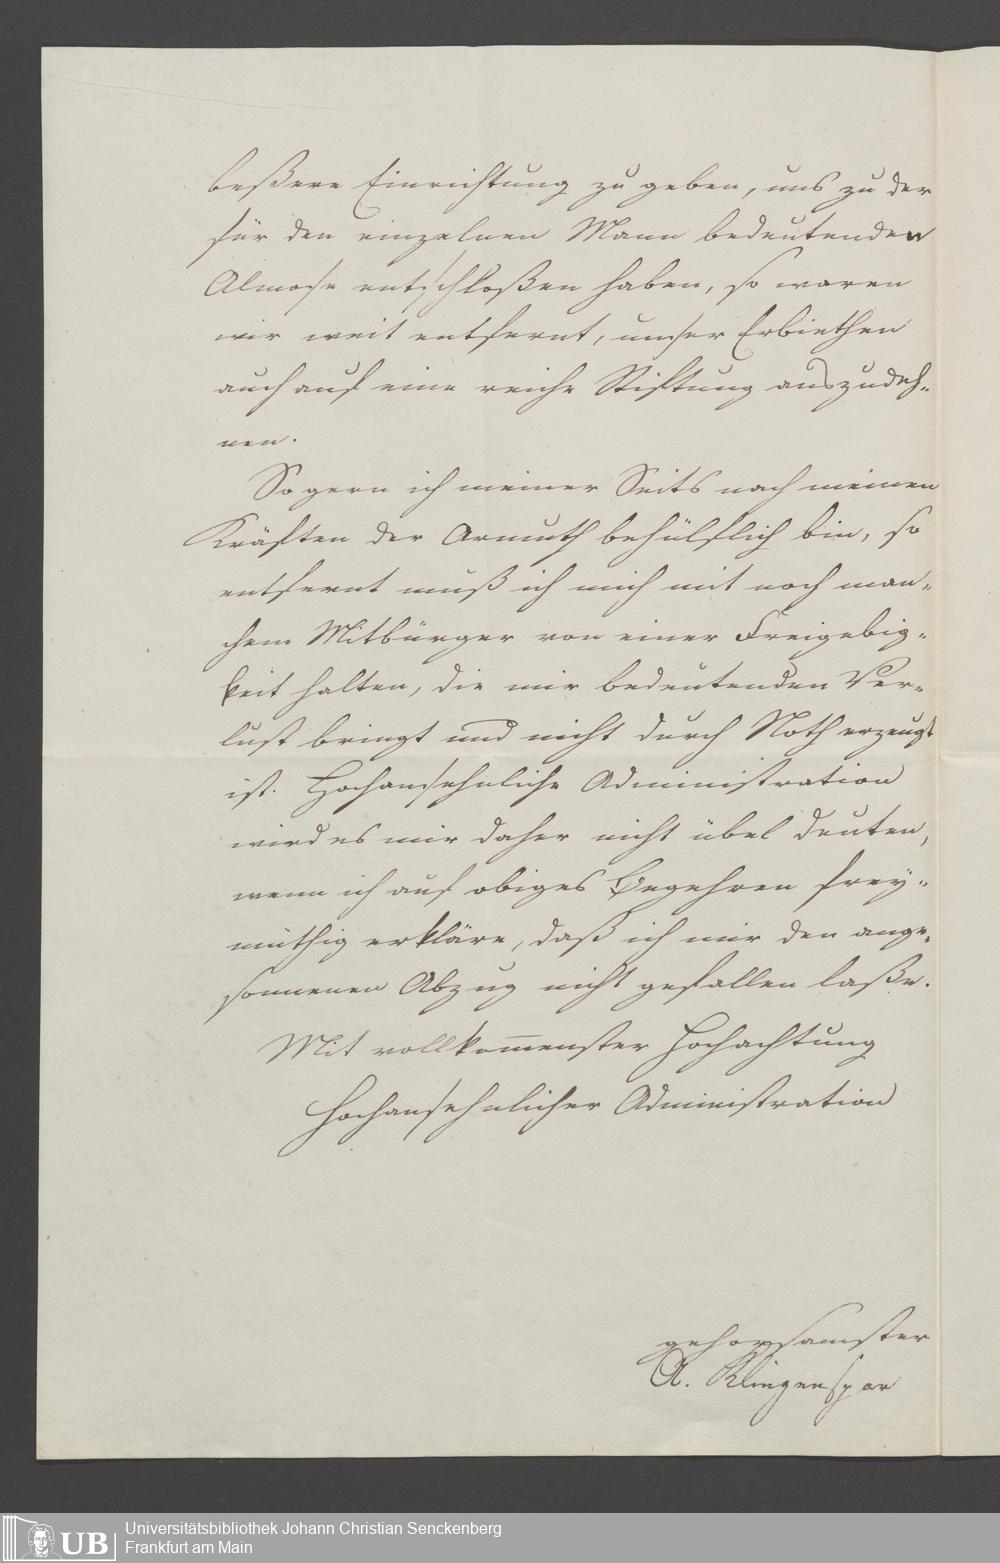 beßere Einrichtung zu geben, uns zu der
für den einzelnen Mann bedeutenden
Almose entschloßen haben, so waren
wir weit entfernt, unser Erbiethen
auch auf eine reiche Stiftung auszudeh-
nen.
So gern ich meiner Seits nach meinen
Kräften der Armuth behülflich bin, so
entfernt muß ich mich mit noch man-
chem Mitbürger von einer Freigebig-
keit halten, die mir bedeutenden Ver-
lust bringt und nicht durch Noth erzeugt
ist. Hochansehnliche Administration
wird es mir daher nicht übel deuten,
wenn ich auf obiges Begehren frey-
müthig erkläre, daß ich mir den ange-
sonnenen Abzug nicht gefallen laße.
Mit vollkom̅enster Hochachtung
Hochansehnlicher Administration
gehorsamster
A. Klingenspor
UB
Universitätsbibliothek Johann Christian Senckenberg
Frankfurt am Main